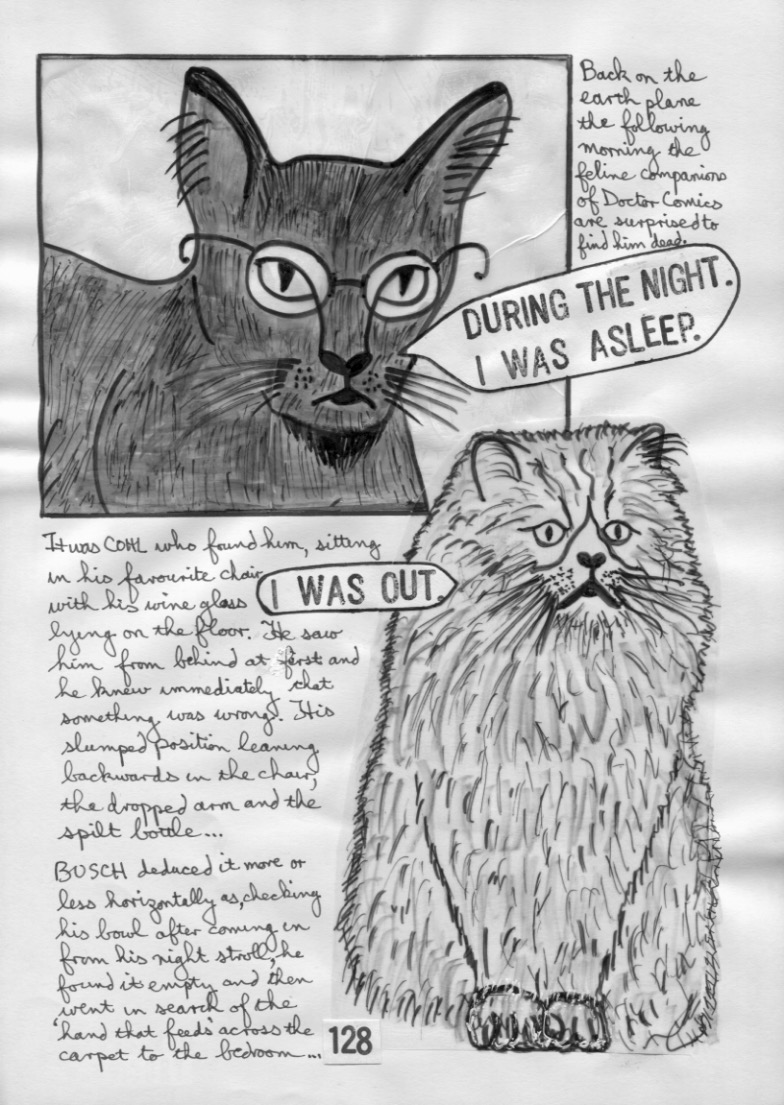 Back on the
earth plane
the following
morning the
feline companions
of Doctor Comics
are surprised to
find him dead.
DURING THE NIGHT.
I WAS ASLEEP.
It was COHL who found him, sitting
in his favourite chair
with his wine glass
lying on the floor. He saw
him from behind at first and
he knew immediately that
something was wrong. His
slumped position leaning
backwards in the chair,
the dropped arm and the
spilt bottle...
I WAS OUT.
BUSCH deduced it more or
less horizontally as, checking
his bowl after coming in
from his night stroll, he
found it empty and then
went in search of the
'hand that feeds' across the
carpet to the bedroom...
128